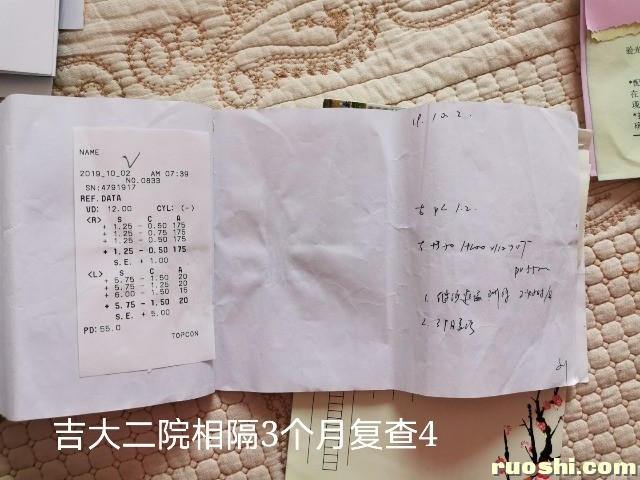 NAME
2019_10_02 AM 07:39
NO.0833
SN:4791917
REF.DATA
VD: 12.00 CYL: (-)
<R> S C A
+ 1.25 - 0.50 175
+ 1.25 - 0.75 175
+ 1.25 - 0.50 175
+ 1.25 - 0.50 175
S.E. + 1.00
<L> S C A
+ 5.75 - 1.50 20
+ 5.75 - 1.25 20
+ 6.00 - 1.50 15
+ 5.75 - 1.50 20
S.E. + 5.00
PD: 55.0
TOPCON
19. 10. 2.
1.2
1.
2. 3个月复诊
验光
吉大二院相隔3个月复查4
ruoshi.com